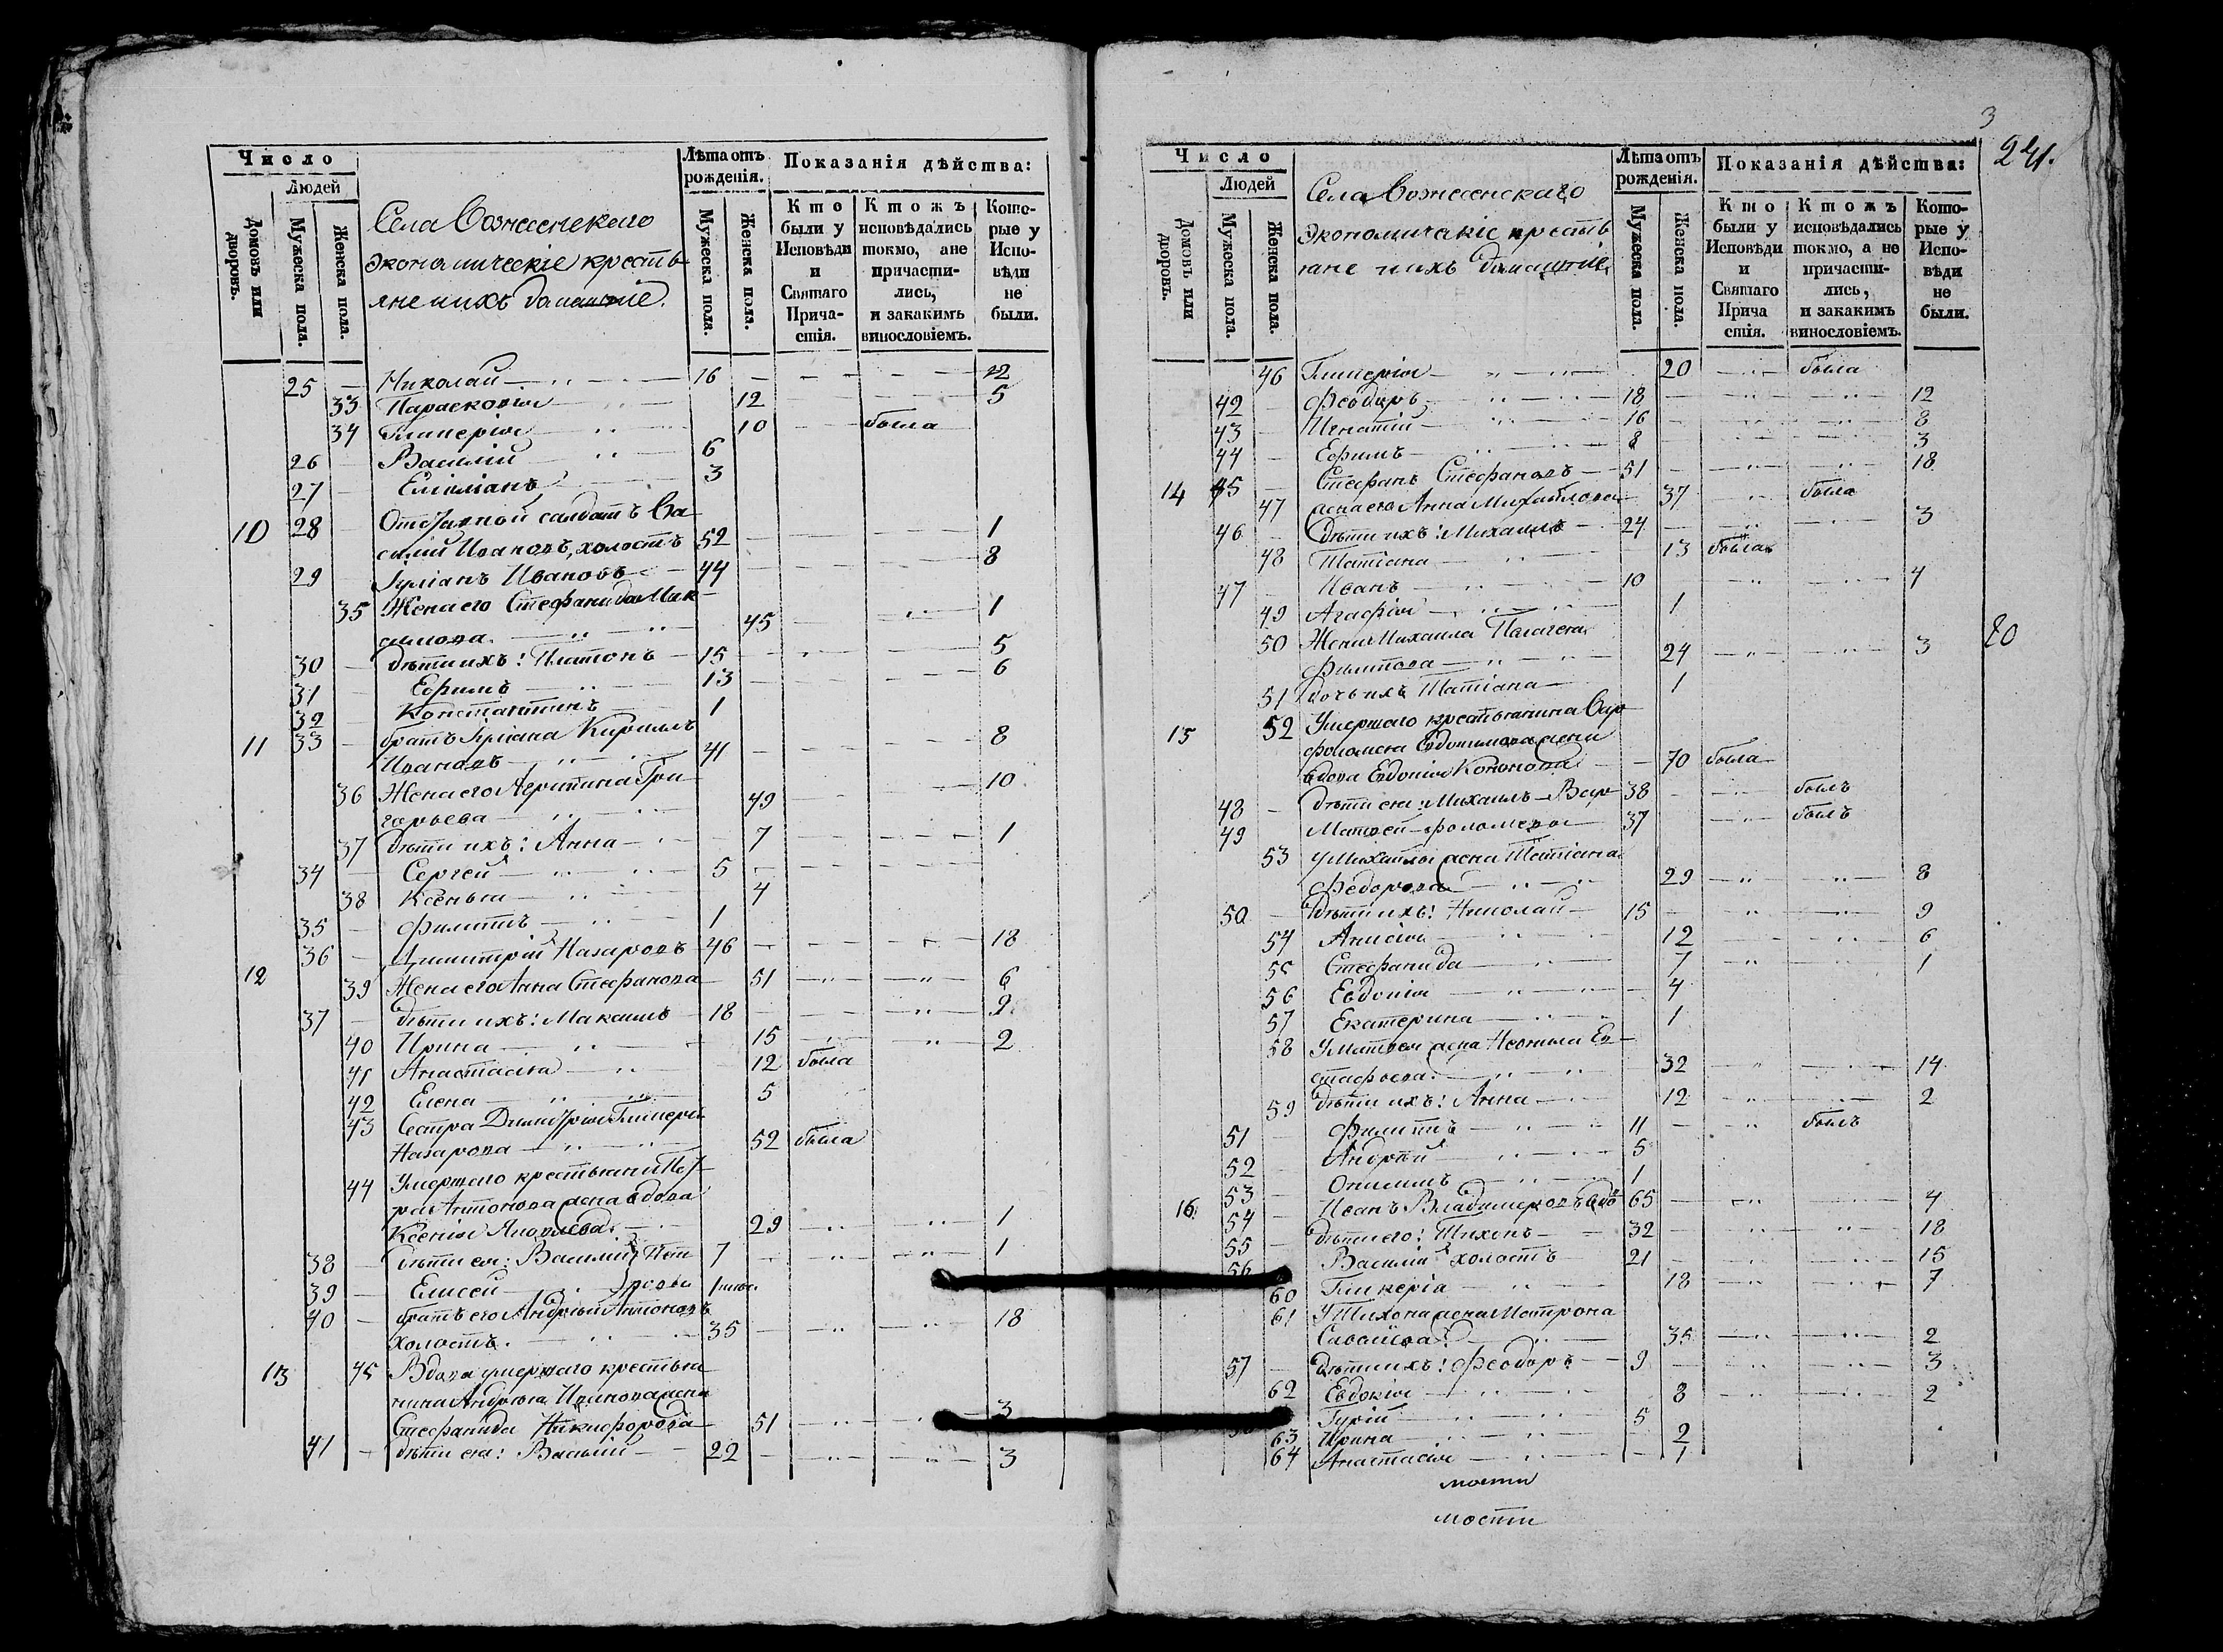 Число
Людей
Домовъ или дворовъ.
Мужеска пола.
Женска пола.
Села Вознесенскаго
экономическiе кресть
яне и ихъ домашнiе.
Лѣта отъ рожденiя.
Мужеска пола.
Женска пола.
Показанiя дѣйства:
Кто были у Исповѣди и Святаго Прича-стiя.
Ктожъ исповѣдались токмо, а не причасти-лись, и закакимъ винословiемъ.
Кото-рые у Испо-вѣди не были.
25 — Николай 16 12
33 Парасковiя 12 5
34 Гликерiя 10 была
26 Василiй 6
27 Емелiанъ 3
10 28 Отставной салдатъ Ва
силiй Ивановъ, холостъ 52 1
29 Iулiанъ Ивановъ 44 8
35 Жена его Стефанида Мак-
симова 45 1
30 дѣти ихъ: Платонъ 15 5
31 Ефимъ 13 6
32 Константинъ 1
11 33 братъ Iулiана Кирилъ
Ивановъ 41 8
36 Жена его Агрипина Гри-
горьева 49 10
37 дѣти ихъ: Анна 7 1
34 Сергей 5
38 Ксенья 4
35 Филиппъ 1
12 36 Димитрiй Назаровъ 46 18
39 Жена его Анна Стефанова 51 6
37 дѣти ихъ: Максимъ 18 9
40 Ирина 15 2
41 Анастасiя 12 была
42 Елена 5
43 Сестра Димитрiя Гликерiя
Назарова 52 была
44 Умершаго крестьянина Пет
ра Антонова жена вдова
Ксенiя 29 1
38 дѣти ея: Василiй Пет 7 1
39 Елисей ровы 1
40 братъ его Андрей Антоновъ
холостъ. 35 18
13 45 Вдова умершаго крестья
нина Андрея жена
Стефанида Никифорова 51 3
41 дѣти ея: Василiй 22 3
3
241.
Число
Людей
Домовъ или дворовъ.
Мужеска пола.
Женска пола.
Села Вознесенскаго
экономическiе кресть
яне и ихъ домашнiе.
Лѣта отъ рожденiя.
Мужеска пола.
Женска пола.
Показанiя дѣйства:
Кто были у Исповѣди и Святаго Прича стiя.
Ктожъ исповѣдались токмо, а не причасти-лись, и закакимъ винословiемъ.
Кото-рые у Испо-вѣди не были.
46 Гликерiя 20 была
42 Феодоръ 18 12
43 Игнатiй 16 8
44 Ефимъ 8 3
14 45 Стефанъ Стефановъ 51 18
47 жена его Анна Михайлова 37 была
46 дѣти ихъ: Михаилъ 24 3
48 Татiана 13 была
47 Иванъ 10 4
49 Агафiя 1
50 Жена Михаила Пелагея
Филипова 24 3
20
51 дочь ихъ Татiана 1
15 52 Умершаго крестьянина Вар
фоломея Евдокимова жена
вдова Евдокiя Кононова 70 была
48 дѣти ея: Михаилъ Вар 38 былъ
49 Матвей фоломеевы 37 былъ
53 У Михайлы жена Татiана
Федорова 29 8
50 дѣти ихъ: Николай 15 9
54 Анисiя 12 6
55 Стефанида 7 1
56 Евдокiя 4
57 Екатерина 1
58 У Матвея жена Неонила Ев-
стафьева 32 14
59 дѣти ихъ: Анна 12 2
51 Филиппъ 11 былъ
52 Андрей 5
53 Онисимъ 1
16 54 Иванъ Владимеровъ вдо 65 4
55 дѣти его: Тихонъ 32 18
56 Василiй холостъ 21 15
60 Гликерiя 18 7
61 У Тихона жена Матрона
35 2
57 дѣти ихъ: Феодоръ 9 3
62 Евдокiя 8 2
Гурiй 5
63 Ирина 2
64 Анастасiя 1
мости
мости